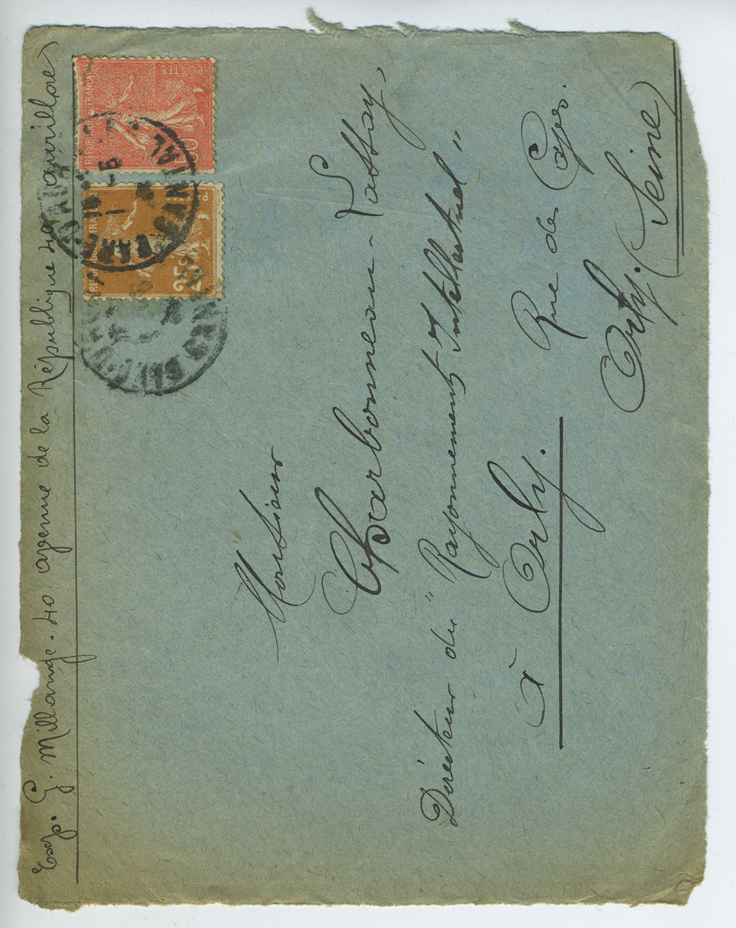 Exp. G. Millange. 40 avenue de la République 40 aurillac
REPUBLIQUE FRANÇAISE
POSTES
25c
CANTAL
Monsieur
Charbonneau-Lassay,
Directeur du "Rayonnement Intellectuel"
à Orly.
Rue des Capes.
Orly. (Seine)